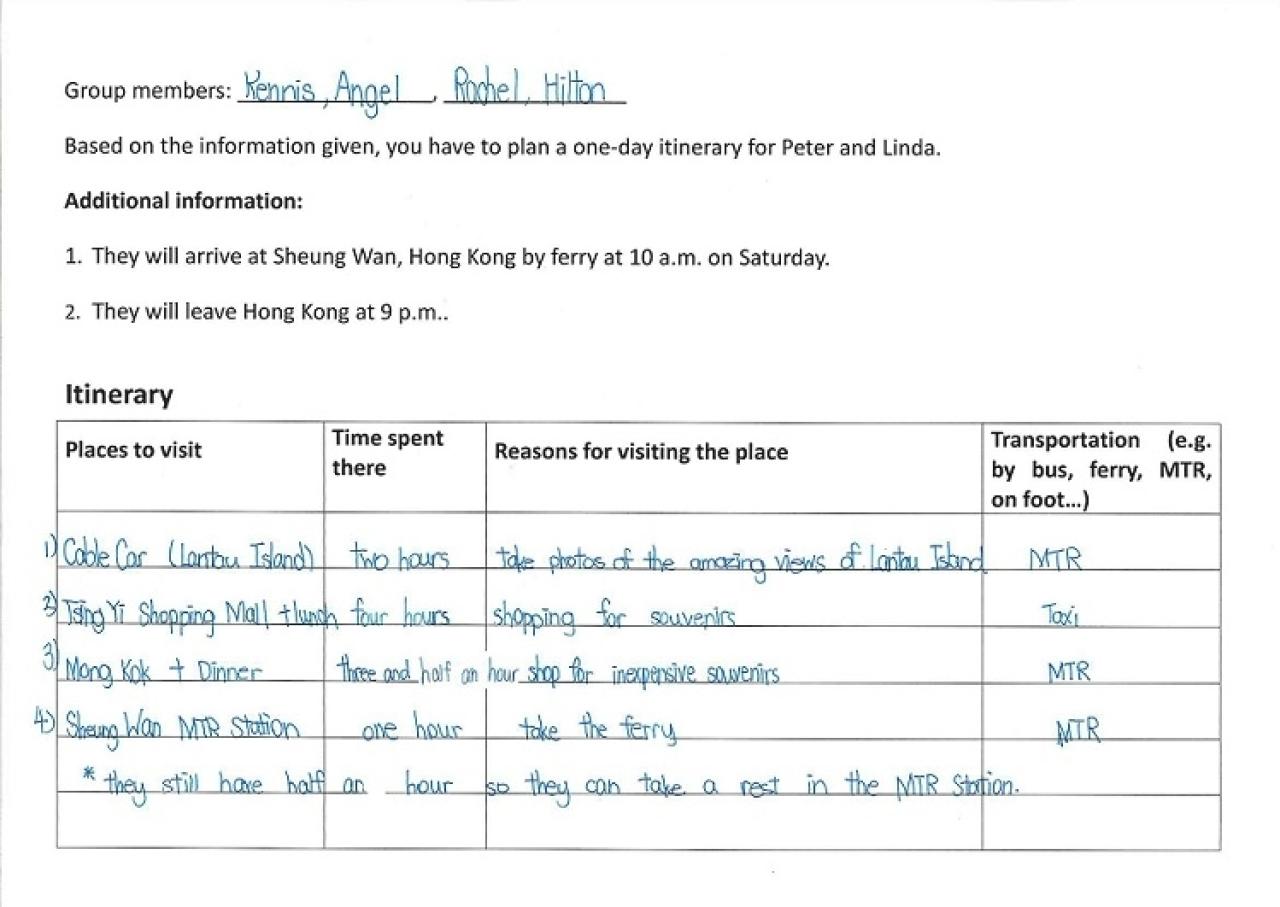 Group members: Kennis, Angel, Rachel, Hilton
Based on the information given, you have to plan a one-day itinerary for Peter and Linda.
Additional information:
1. They will arrive at Sheung Wan, Hong Kong by ferry at 10 a.m. on Saturday.
2. They will leave Hong Kong at 9 p.m..
Itinerary
Places to visit Time spent there Reasons for visiting the place Transportation (e.g. by bus, ferry, MTR, on foot...)
1) Cable Car (Lantau Island) two hours take photos of the amazing views of Lantau Island MTR
2) Tsing Yi Shopping Mall + lunch four hours shopping for souvenirs Taxi
3) Mong Kok + Dinner three and half an hour shop for inexpensive souvenirs MTR
4) Sheung Wan MTR Station one hour take the ferry MTR
* they still have half an hour so they can take a rest in the MTR Station.